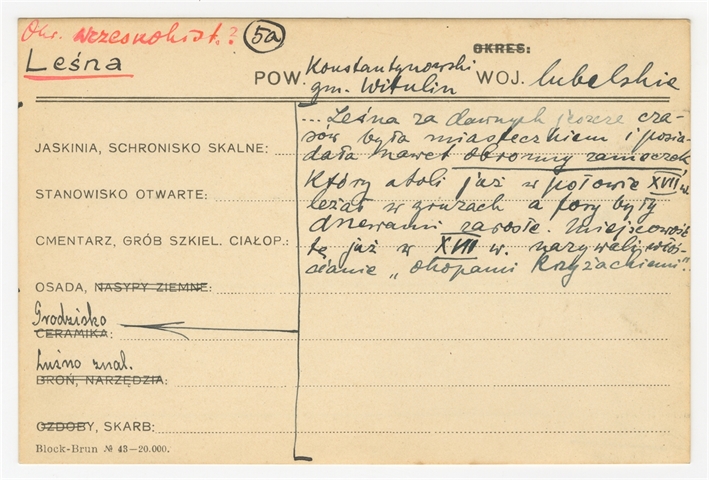 Okr. wczesnohist.? 5a
Leśna
OKRES:
POW. Konstantynowski
gm. Witulin
WOJ. lubelskie
... Leśna za dawnych jeszcze cza-
sów była miasteczkiem i posia-
dała nawet obronny zameczek,
który atoli już w połowie XVII w.
leżał w gruzach a fosy były
drzewami zarosłe. Miejscowość
tę już w XVIII w. nazywali włoś-
cianie „okopami krzyżackiemi".
JASKINIA, SCHRONISKO SKALNE:
STANOWISKO OTWARTE:
CMENTARZ, GRÓB SZKIEL. CIAŁOP.:
OSADA, NASYPY ZIEMNE:
Grodzisko
CERAMIKA:
Luźno znal.
BROŃ, NARZĘDZIA:
OZDOBY, SKARB:
Block-Brun № 43—20.000.